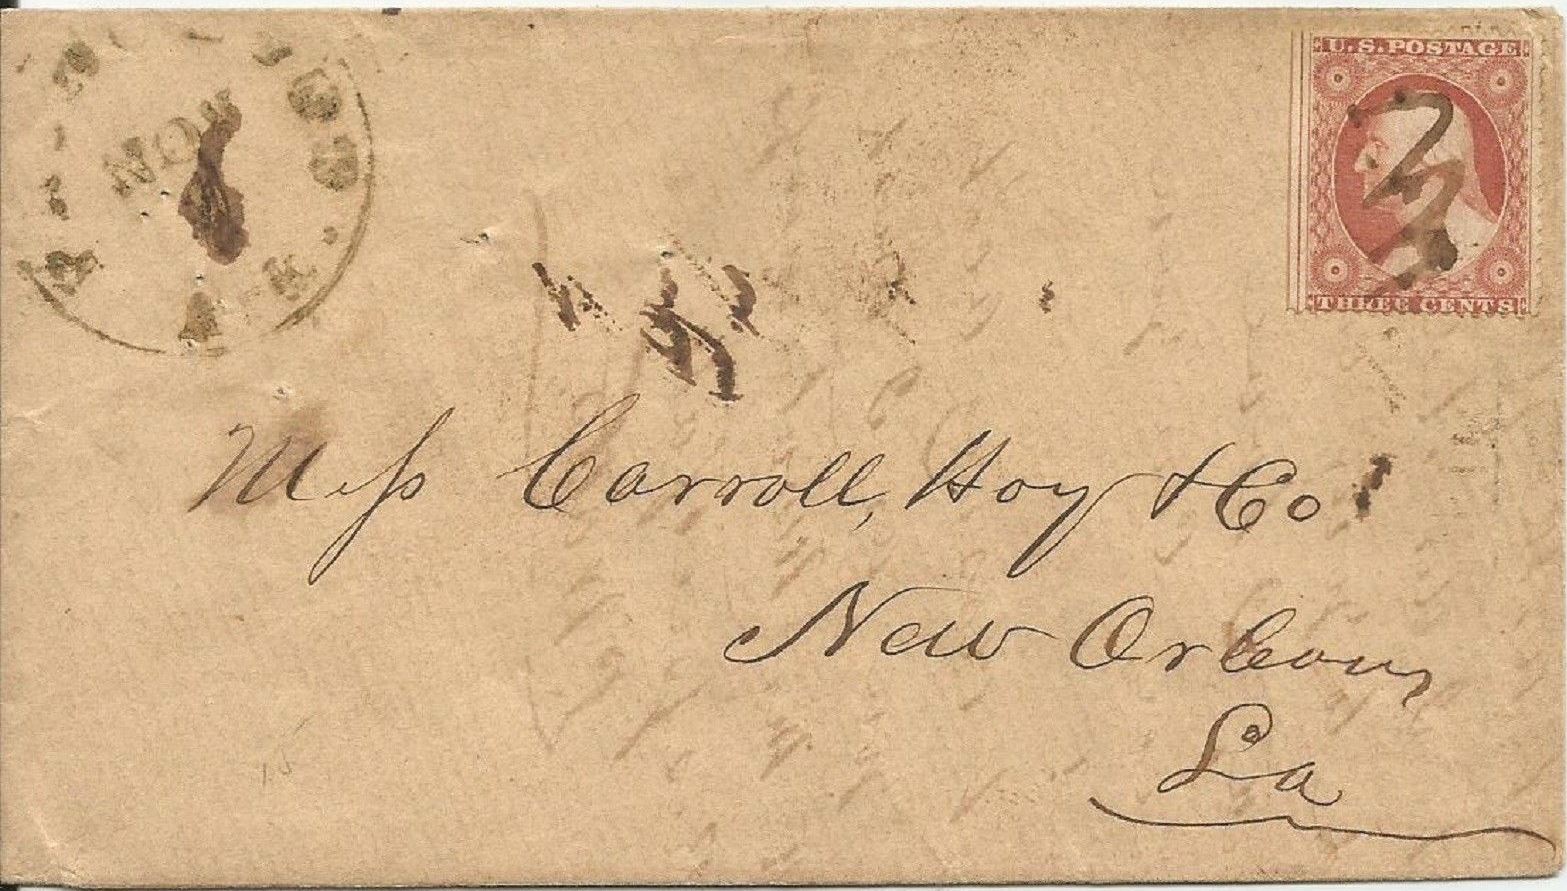 NOV
ARK.
U.S. POSTAGE
THREE CENTS
Mess Carroll, Hoy & Co
New Orleans
La
15